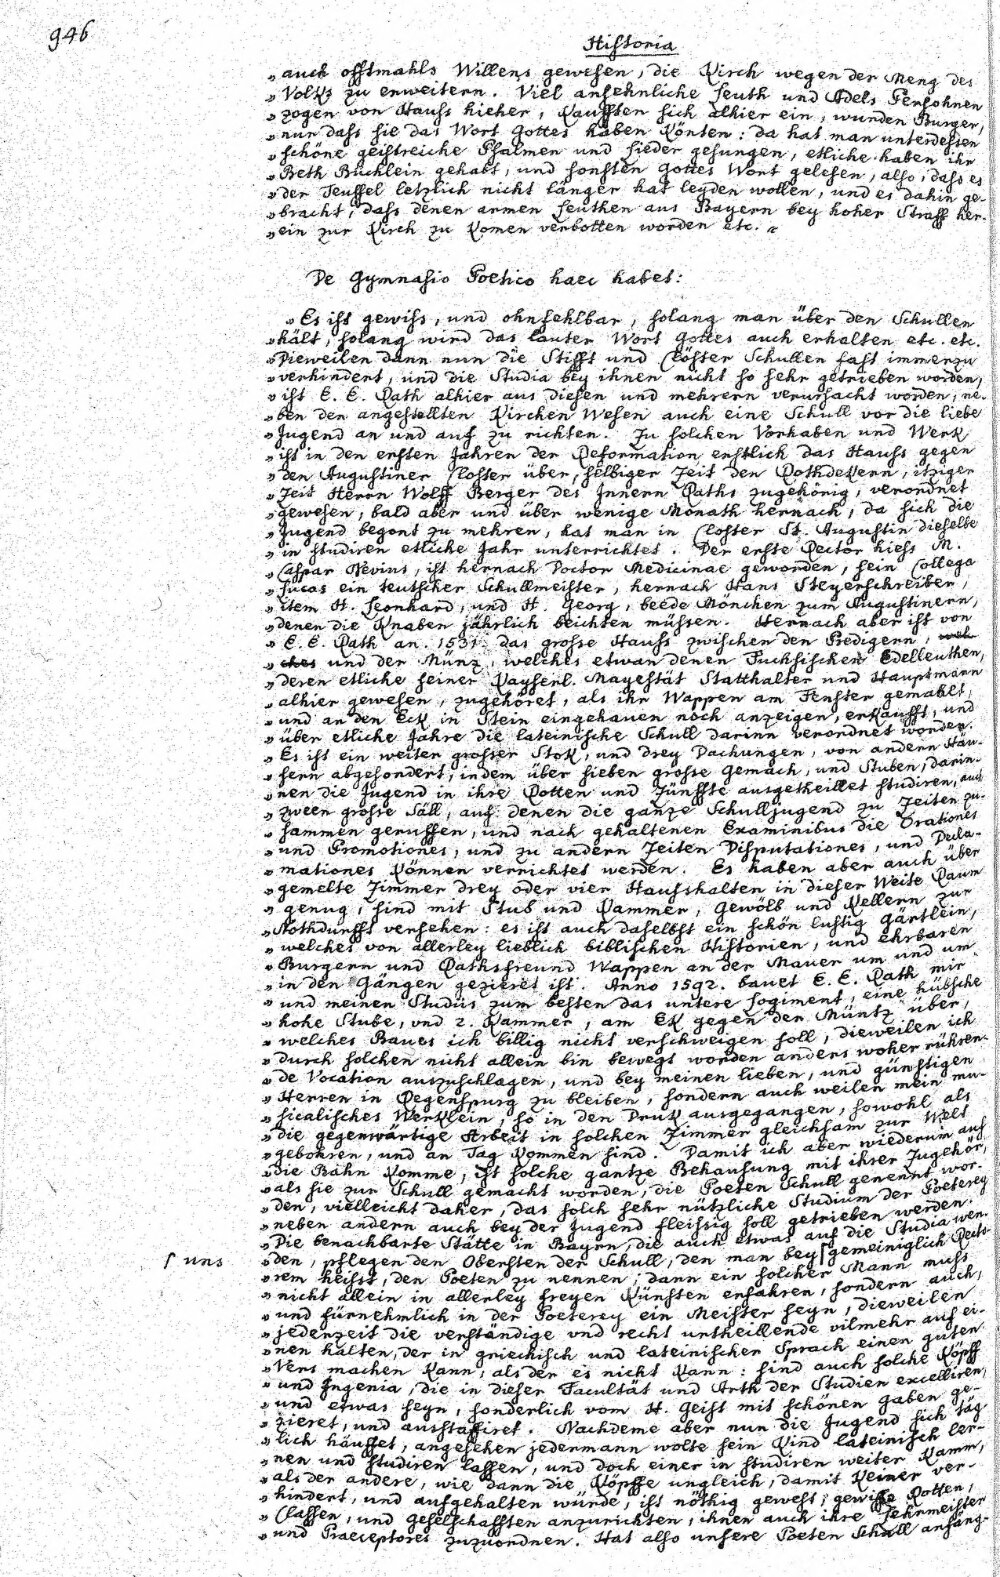 946
Historia
„ auch offtmahls Willens gewesen, die Kirch wegen der Meng des
„ Volks zu erweitern. Viel ansehnliche Leuth und Adels Persohnen
„ zogen von Hauss hieher, Kaufften sich alhier ein, wurden Burger,
„ nur dass sie das Wort Gottes haben Könten: da hat man unterdessen
„ schöne geistreiche Psalmen und Lieder gesungen, etliche haben ihr
„ Beth Büchlein gehabt, und sonsten Gottes Wort gelesen, also, dass es
„ der Teuffel letzlich nicht länger hat leyden wollen, und es dahin ge-
„ bracht, dass denen armen Leuthen aus Bayern bey hoher Straff her-
„ ein zur Kirch zu Komen verbotten worden etc. "
De Gymnasio Poetico haec habet:
„ Es ist gewiss, und ohnfehlbar, solang man über den Schullen
„ hält, solang wird das lauter Wort Gottes auch erhalten etc. etc.
„ Dieweilen dann nun die Stifft und Clöster Schullen fast immerzu
„ verhindert, und die Studia bey ihnen nicht so sehr getrieben worden,
„ ist E. E. Rath alhier aus diesen und mehrern verursacht worden, ne-
„ ben den angestellten Kirchen Wesen auch eine Schull vor die liebe
„ Jugend an und auf zu richten. Zu solchen Vorhaben und Werk
„ ist in den ersten Jahren der Reformation erstlich das Hauss gegen
„ den Augustiner Closter über, selbiger Zeit den Rothdekern, itziger
„ Zeit Herrn Wolff Berger des Innern Raths zugehörig, verordnet
„ gewesen, bald aber und über wenige Monath hernach, da sich die
„ Jugend begont zu mehren, hat man in Closter St. Augustin dieselbe
„ in studiren etliche Jahr unterrichtet. Der erste Rector hiess M.
„ Caspar Nevius, ist hernach Doctor Medicinae geworden, sein Collega
„ Lucas ein teutscher Schullmeister, hernach Hans Steyerschreiber,
„ item H. Leonhard, und H. Georg, beede Mönchen zum Augustinern,
„ denen die Knaben jährlich beichten müssen. Hernach aber ist von
„ E. E. Rath an. 1531. das grosse Hauss zwischen den Predigern, wel-
„ ches und der Münz, welches etwan denen Fuchsischen Edelleuthen,
„ deren etliche seiner Kayserl. Mayestät Statthalter und Hauptmann
„ alhier gewesen, zugehöret, als ihr Wappen am Fenster gemahlt,
„ und an den Eck in Stein eingehauen noch anzeigen, erkaufft, und
„ über etliche Jahre die lateinische Schull darinn verordnet worden.
„ Es ist ein weiter grosser Stok, und drey Dachungen, von andern Häu-
„ sern abgesondert, indem über sieben grosse Gemach, und Stuben, darin-
„ nen die Jugend in ihre Rotten und Zünffte ausgetheillet studiren, auch
„ zween grosse Säll, auf denen die ganze Schulljugend zu Zeiten zu-
„ sammen geruffen, und nach gehaltenen Examinibus die Orationes
„ und Promotiones, und zu andern Zeiten Disputationes, und Decla-
„ mationes Können verrichtet werden. Es haben aber auch über
„ gemelte Zimmer drey oder vier Hausshalten in dieser Weite Raum
„ genug, sind mit Stub und Kammer, Gewölb und Kellern zur
„ Nothdurfft versehen: es ist auch daselbst ein schön lustig Gärtlein,
„ welches von allerley lieblich biblischen Historien, und ehrbaren
„ Burgern und Rathsfreund Wappen an der Mauer um und um
„ in den Gängen gezieret ist. Anno 1592. bauet E. E. Rath mir
„ und meinen Studiis zum besten das untere Logiment, eine hübsche
„ hohe Stube, und 2. Kammer, am Ek gegen der Müntz über,
„ welches Baues ich billig nicht verschweigen soll, dieweilen ich
„ durch solchen nicht allein bin bewegt worden anders woher rühren-
„ de Vocation auszuschlagen, und bey meinen lieben, und günstigen
„ Herren in Regenspurg zu bleiben, sondern auch weilen mein mu-
„ sicalisches Werklein, so in den Druk ausgegangen, sowohl als
„ die gegenwärtige Arbeit in solchen Zimmer gleichsam zur Welt
„ gebohren, und an Tag Kommen sind. Damit ich aber wiederum auf
„ die Bahn Komme, ist solche gantze Behausung mit ihrer Zugehör,
„ als sie zur Schull gemacht worden, die Poeten Schull genennt wor-
„ den, vielleicht daher, das solch sehr nützliche Studium der Poeterey
„ neben andern auch bey der Jugend fleissig soll getrieben werden.
„ Die benachbarte Stätte in Bayrn, die auch etwas auf die Studia wen-
⌠ uns „ den, pflegen den Obersten der Schull, den man bey⌠gemeiniglich Recto-
„ rem heisst, den Poeten zu nennen, dann ein solcher Mann muss
„ nicht allein in allerley freyen Künsten erfahren, sondern auch,
„ und fürnehmlich in der Poeterey ein Meister seyn, dieweilen
„ jederzeit die verständige und recht urtheillende vilmehr auf ei-
„ nen halten, der in griechisch und lateinischer Sprach einen guten
„ Vers machen Kann, als der es nicht Kann: sind auch solche Köpff
„ und Ingenia, die in dieser Facultät und Arth der Studien excelliren,
„ und etwas seyn, sonderlich vom H. Geist mit schönen Gaben ge-
„ zieret, und ausstaffiret. Nachdeme aber nun die Jugend sich täg-
„ lich häuffet, angesehen jedermann wolte sein Kind lateinisch ler-
„ nen und studiren lassen, und doch einer in studiren weiter Kamm,
„ als der andere, wie dann die Köpffe ungleich, damit Keiner ver-
„ hindert, und aufgehalten würde, ist nöthig gewest, gewisse Rotten,
„ Classen, und Gesellschafften anzurichten, ihnen auch ihre Lehrmeister
„ und Praeceptores zuzuordnen. Hat also unsere Poeten Schull anfäng-